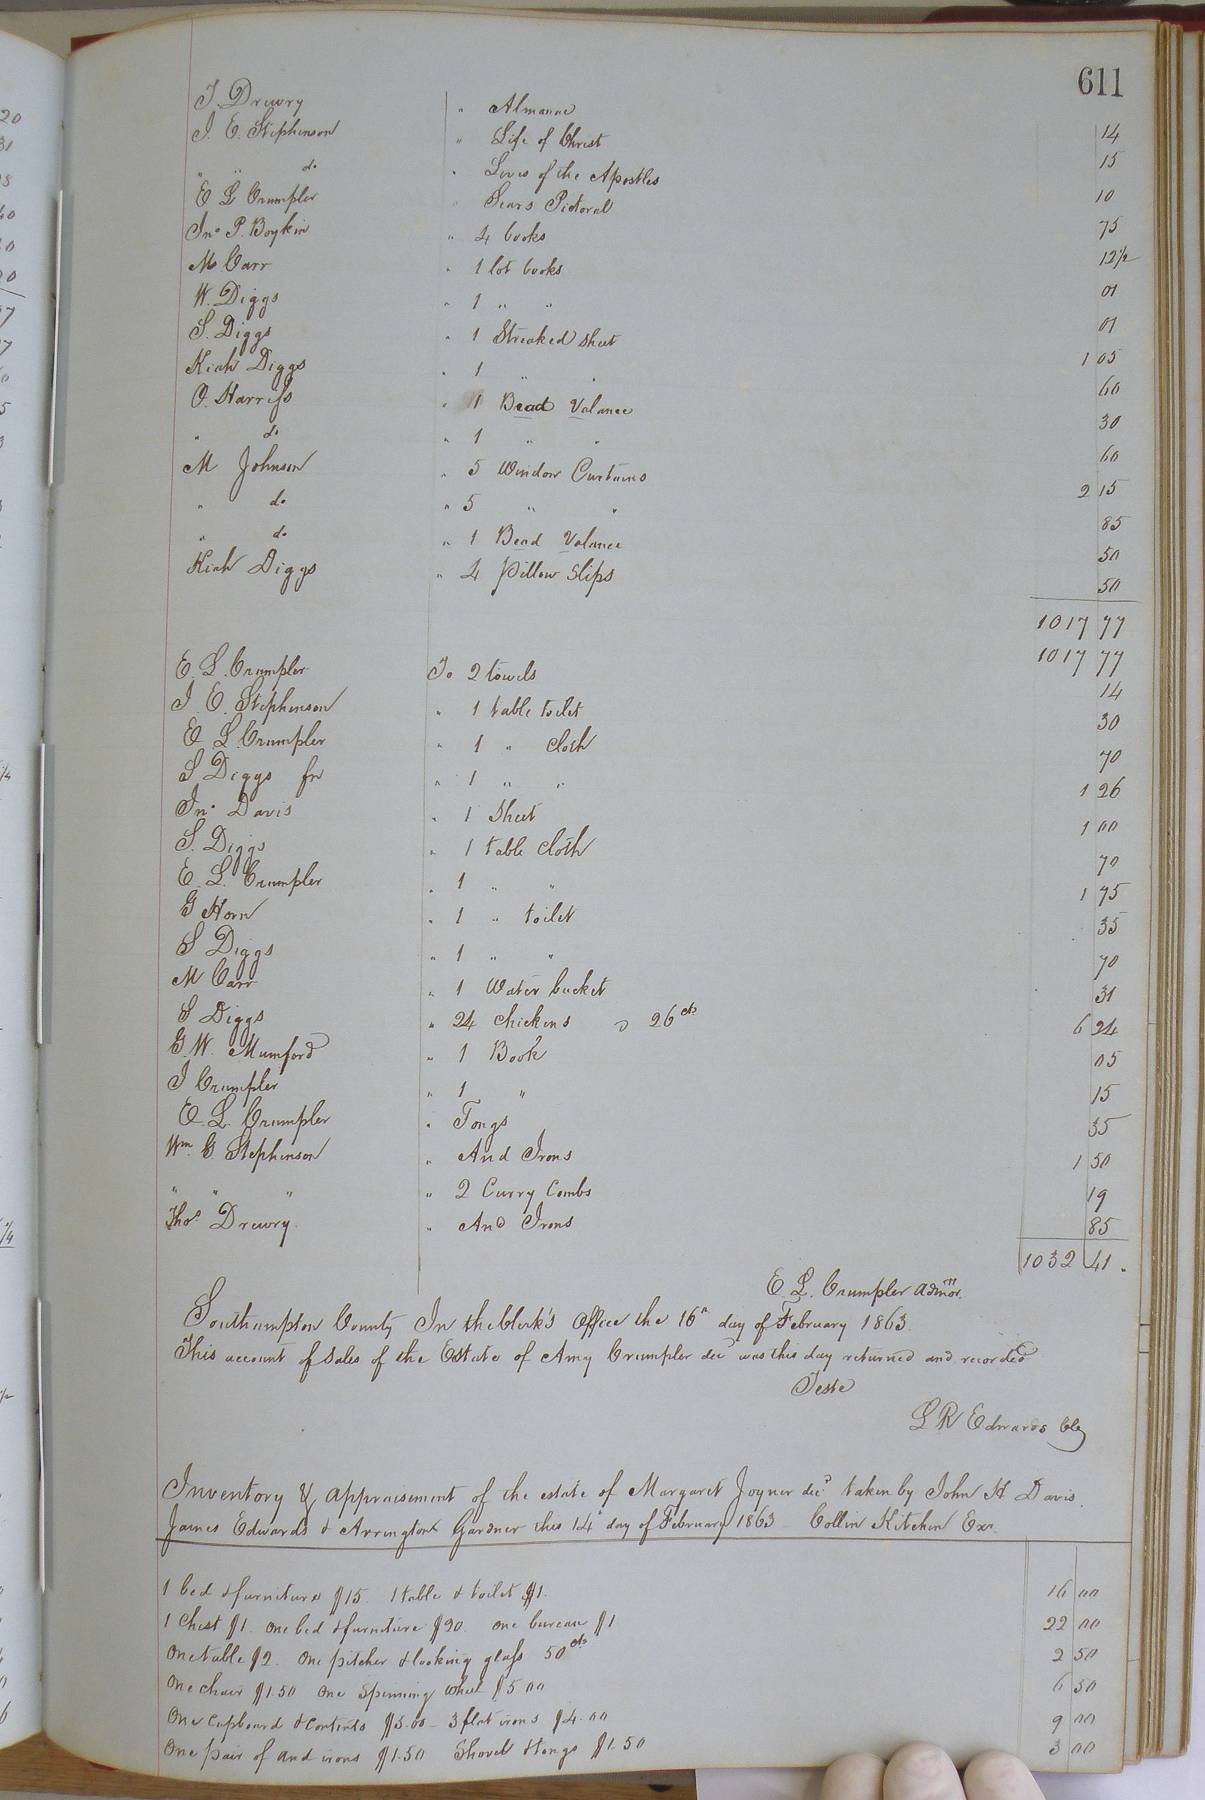 611
T. Drewry " Almanac 14
J. E. Stephenson " Life of Christ 15
" " do " Lives of the Apostles 10
E L Crumpler " Sears Pictoral 75
Jno P. Boykin " 4 books 12 1/2
M Carr " 1 lot books 01
W. Diggs " 1 " " 01
S. Diggs " 1 Streaked Sheet 1 05
Kiah Diggs " 1 " " 60
O. Harriss " 1 Bead Valance 30
" do " 1 " " 60
M Johnson " 5 Window Curtains 2 15
" do " 5 " " 85
" do " 1 Bead Valance 50
Kiah Diggs " 4 Pillow Slips 50
1017 77
1017 77
E. L. Crumpler To 2 towels 14
J. E. Stephenson " 1 table toilet 30
E L. Crumpler " 1 " cloth 70
S Diggs " 1 " " 1 26
Jno. Davis " 1 Sheet 1 00
S. Diggs " 1 table cloth 70
E. L. Crumpler " 1 " " 1 75
G Horn " 1 " toilet 35
S Diggs " 1 " " 70
M Carr " 1 Water bucket 31
S Diggs " 24 chickens 26 cts 6 24
G. W. Mumford " 1 Book 05
J Crumpler " 1 " 15
E. L. Crumpler " Tongs 35
Wm. G Stephenson " And Irons 1 50
" " " " 2 Curry Combs 19
Thos. Drewry. " And Irons 85
1032 41.
E. L. Crumpler admor.
Southampton County In the Clerk's Office the 16 day of February 1863
This account of Sales of the Estate of Amy Crumpler decd was this day returned and recorded
Teste
L R Edwards Clk
Inventory & Appraisement of the estate of Margaret Joyner decd taken by John H Davis
James Edwards & Arrington Gardner this 14 day of February 1863 Collin Kitchen Exr.
1 bed & furniture $15. 1 table & toilet $1. 16 00
1 Chest $1. one bed & furniture $20. one bureau $1 22 00
One table $2. One pitcher & looking glass 50 cts 2 50
One chair $1.50 One Spinning wheel $5.00 6 50
One Cupboard & Contents $5.00 - 3 flat irons $4.00 9 00
One pair of and irons $1.50 Shovel & tongs $1.50 3 00